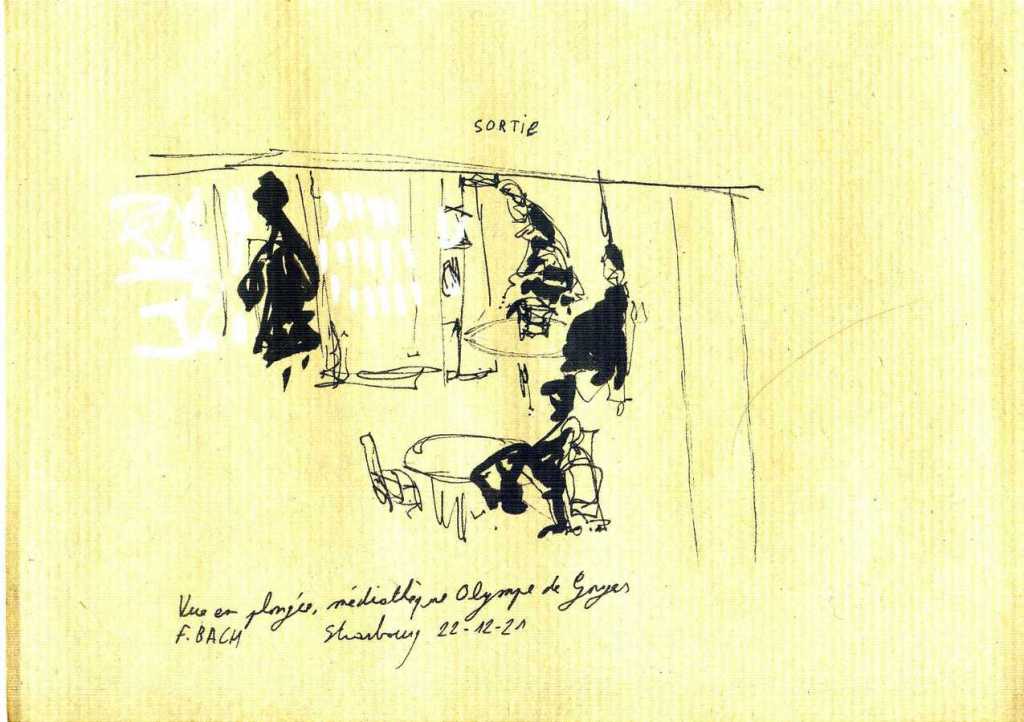 SORTIE
Vue en plongée, médiathèque Olympe de Gouges
F. BACH Strasbourg 22-12-21